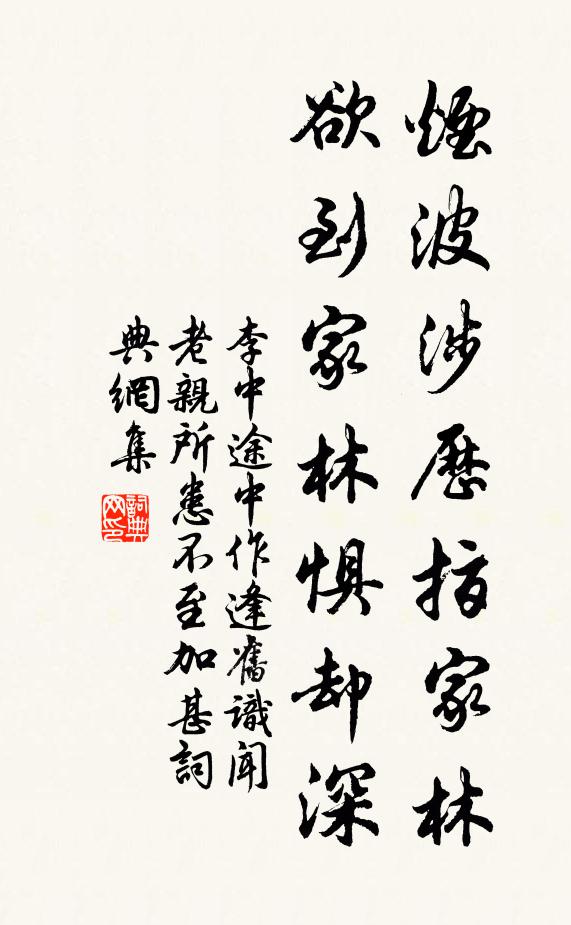 煙波涉歷指家林
欲到家林懼却深
李中途中作逢舊識聞
老親所患不至加甚詞
典網集
詞典网印